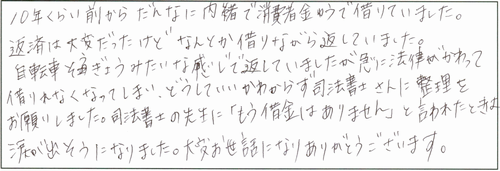 10年くらい前からだんなに内緒で消費者金ゆうで借りていました。
返済は大変だったけどなんとか借りながら返していました。
自転車そうぎょうみたいな感じで返していましたが急に法律がかわって
借りれなくなってしまい、どうしていいかわからず司法書士さんに整理を
お願いしました。司法書士の先生に「もう借金はありません」と言われたときは
涙が出そうになりました。大変お世話になりありがとうございます。